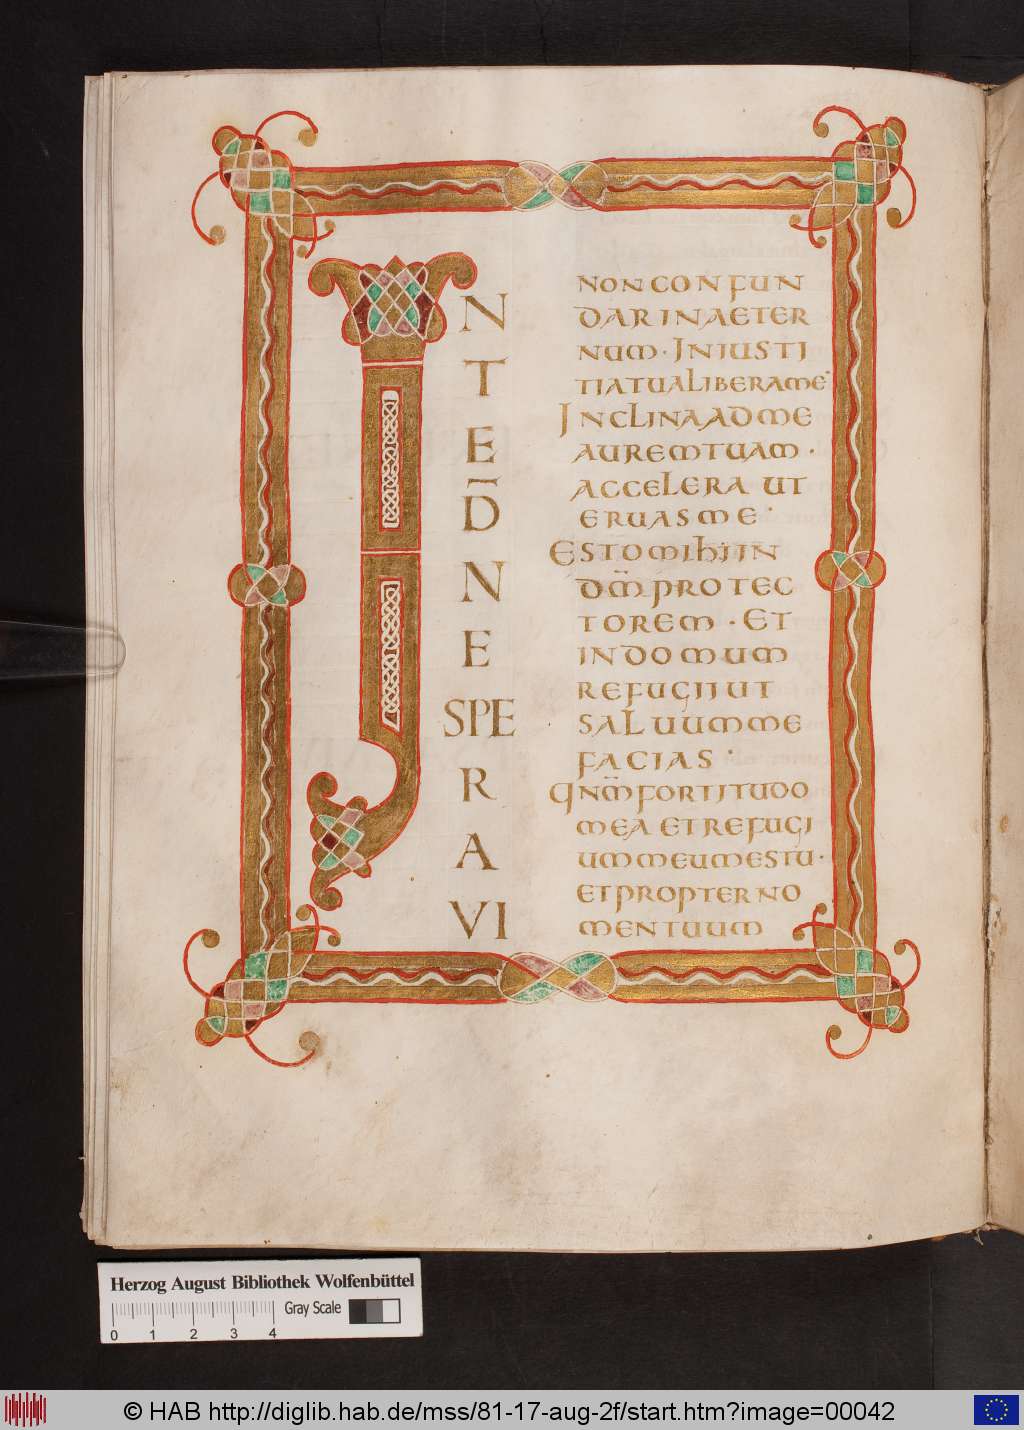 IN
T
E
D̄
N
E
SPE
R
A
VI
NON CONFUN
DAR IN AETER
NUM · IN IUSTI
TIA TUA LIBERA ME ·
INCLINA AD ME
AUREM TUAM ·
ACCELERA UT
ERUAS ME ·
ESTO MIHI IN
DM̄ PROTEC
TOREM · ET
IN DOMUM
REFUGII UT
SALUUM ME
FACIAS ·
QNM̄ FORTITUDO
MEA ET REFUGI
UM MEUM ES TU ·
ET PROPTER NO
MEN TUUM
Herzog August Bibliothek Wolfenbüttel
Gray Scale
0 1 2 3 4
© HAB http://diglib.hab.de/mss/81-17-aug-2f/start.htm?image=00042